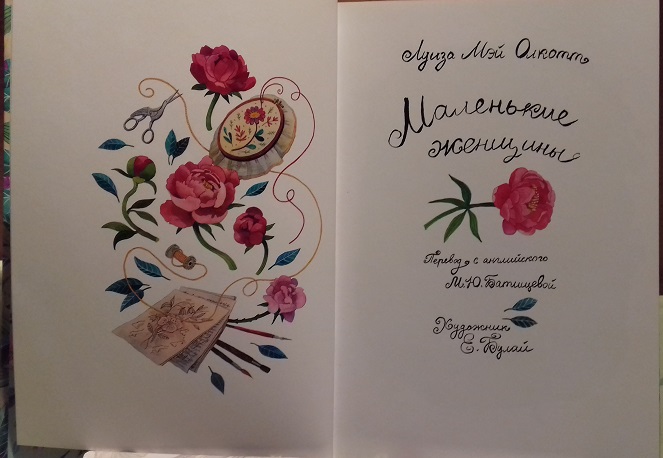 Луиза Мэй Олкотт
Маленькие
женщины
Перевод с английского
М.Ю. Батищевой
Художник
Е. Булай